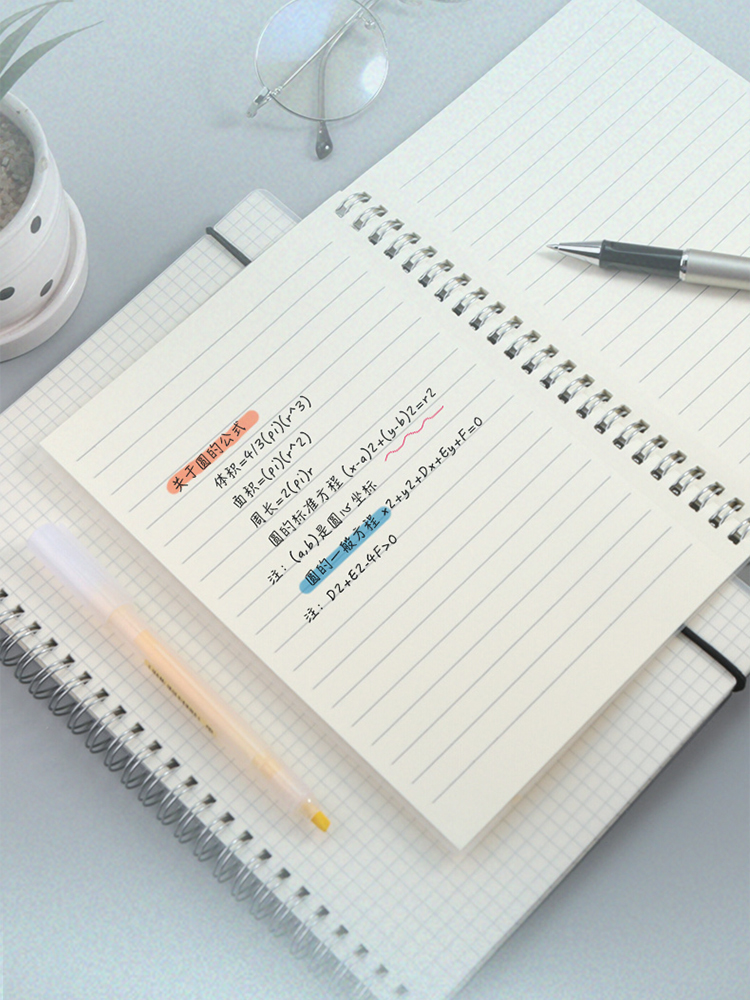 关于圆的公式
体积=4/3(pi)(r^3)
面积=(pi)(r^2)
周长=2(pi)r
圆的标准方程 (x-a)2+(y-b)2=r2
注：(a,b)是圆心坐标
圆的一般方程 x2+y2+Dx+Ey+F=0
注：D2+E2-4F>0